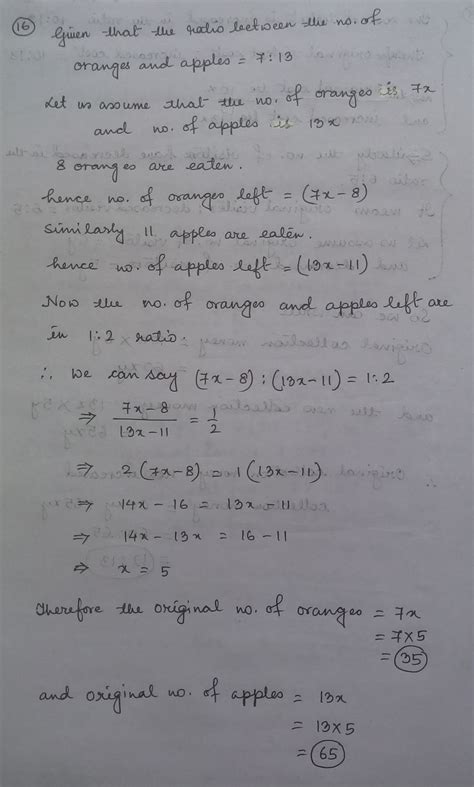 (16) Given that the ratio between the no. of
oranges and apples = 7:13
Let us assume that the no. of oranges is 7x
and no. of apples is 13x
8 oranges are eaten.
hence no. of oranges left = (7x-8)
similarly 11 apples are eaten.
hence no. of apples left = (13x-11)
Now the no. of oranges and apples left are
in 1:2 ratio.
∴ We can say (7x-8) : (13x-11) = 1:2
⇒ 7x-8 / 13x-11 = 1/2
⇒ 2(7x-8) = 1(13x-11)
⇒ 14x - 16 = 13x - 11
⇒ 14x - 13x = 16 - 11
⇒ x = 5
Therefore the original no. of oranges = 7x
= 7x5
= 35
and original no. of apples = 13x
= 13x5
= 65